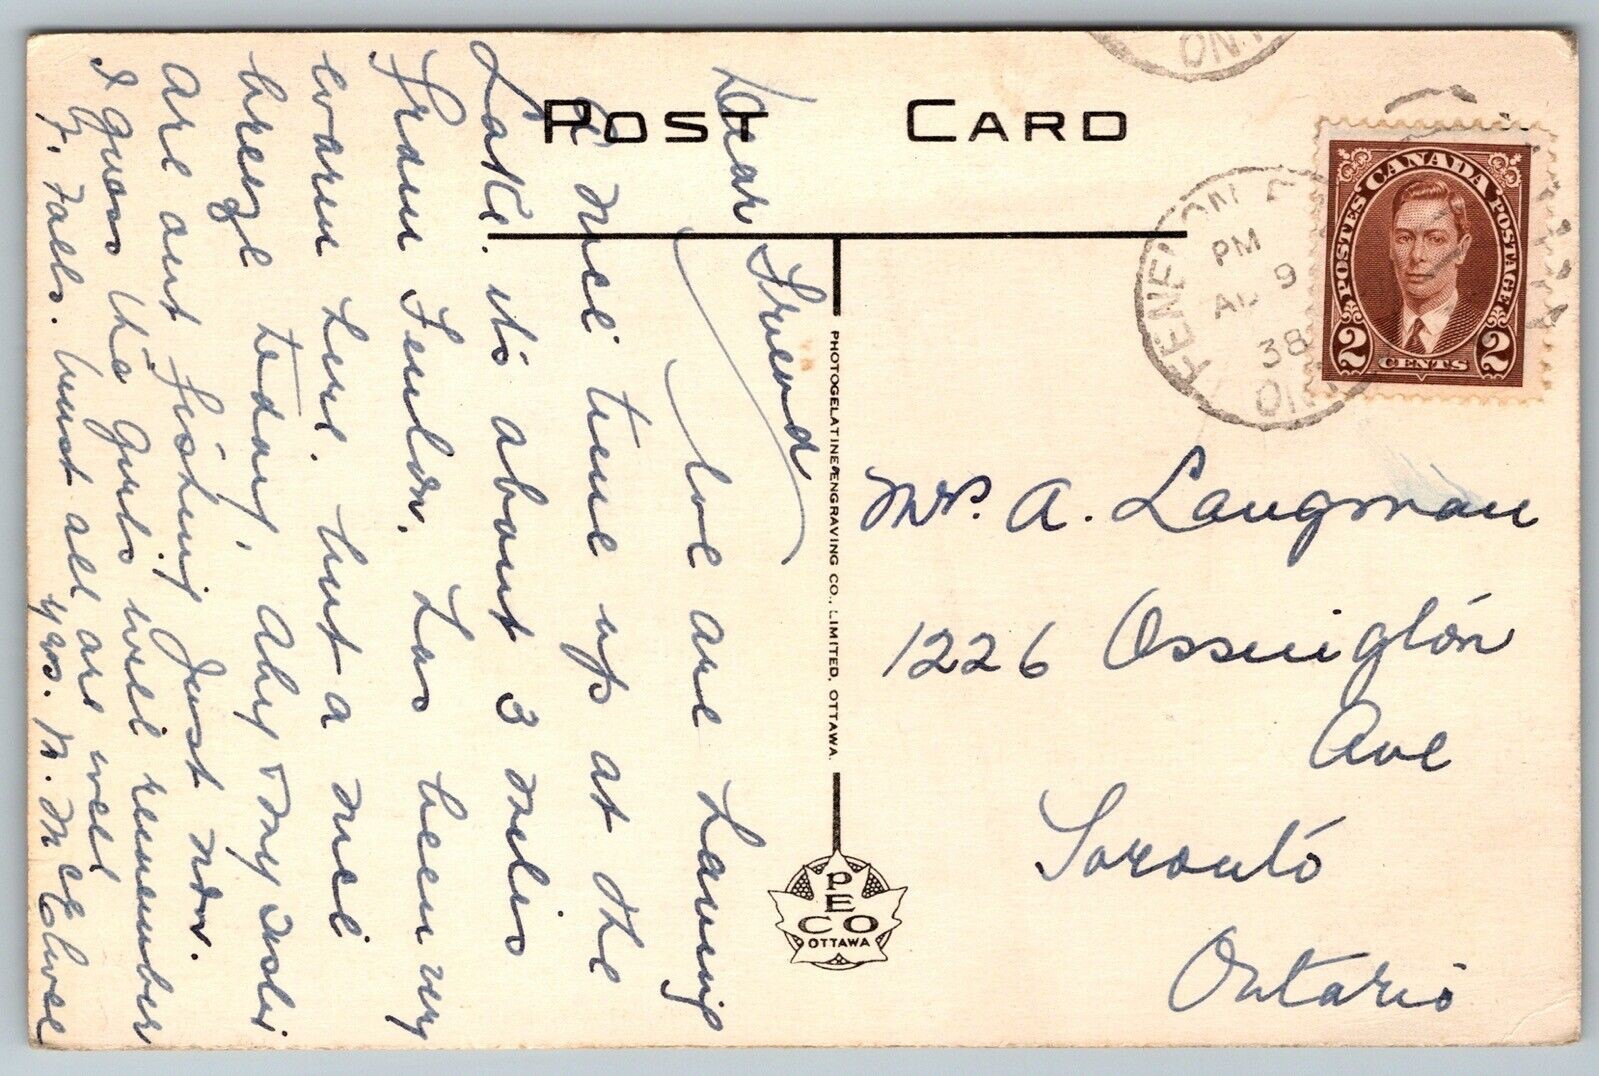 POST CARD
CANADA
POSTES POSTAGE
2 CENTS 2
FENELON
PM
9
AU
38
ONT
ONT
Dear Friend
We are having
a nice time up at the
Lake. it's about 3 miles
from Fenlon. Has been very
warm here. but a nice
breeze today, Alby & my
are out fishing just now.
I guess the girls will remember
F. Falls. hust all are well
yrs. N. McElwee
PHOTOGELATINE ENGRAVING CO., LIMITED, OTTAWA.
PECO
OTTAWA
Mrs. A. Langman
1226 Ossington
Ave
Toronto
Ontario